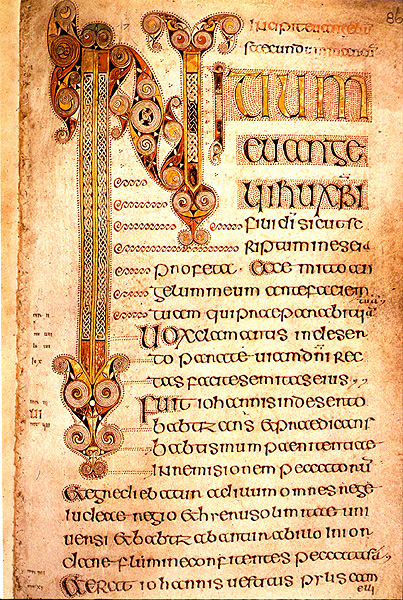 86
INITIUM
EUANGE
LII IHU XPI
filii di sicut sc
riptum in eseia
profeta ecce mitto an
gelum meum ante faciem
tuam qui praeparabit uiam
tuam
Uox clamantis in deser
to parate uiam dni rec
tas facite semitas eius
Fuit iohannis in deserto
babtizans et praedicans
babtismum paenitentiae
in remisionem peccatorum
et egrediebatur ad illum omnes
iudeae regio et hierusolimitae uni
uersi et babtizabantur ab illo in ior
dane flumine confitentes peccata sua
et erat iohannis uestitus pylis cam